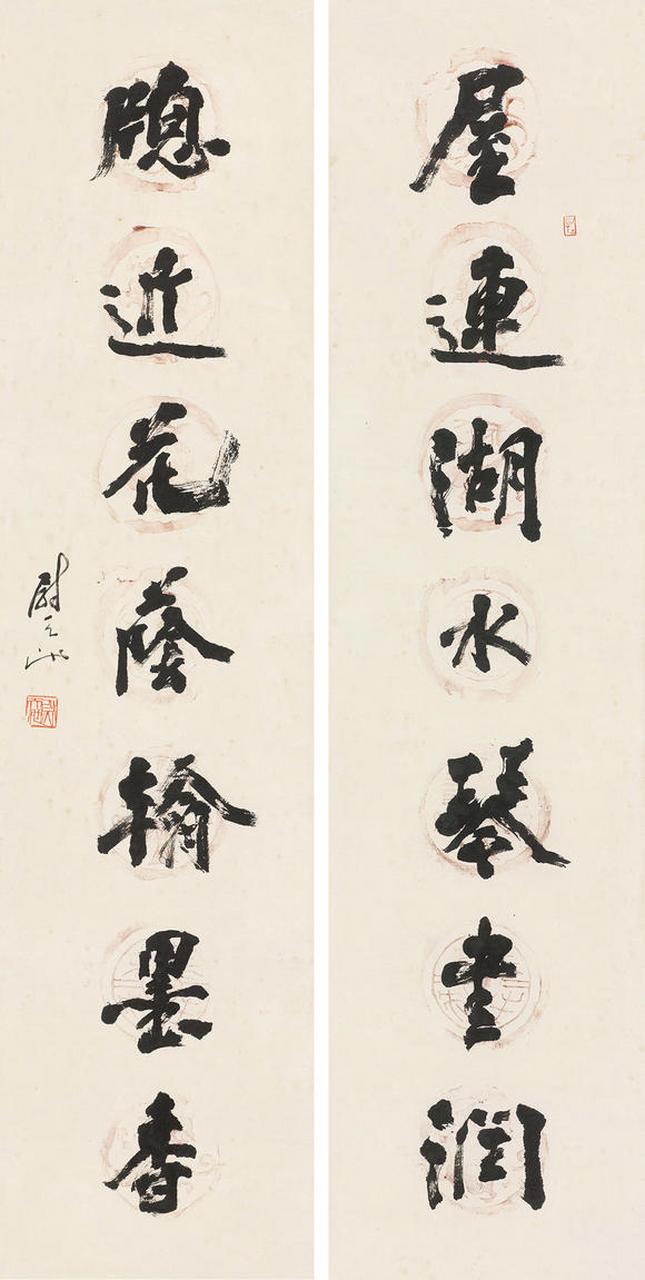 屋連湖水琴書潤
牕近花蔭翰墨香
尉天池